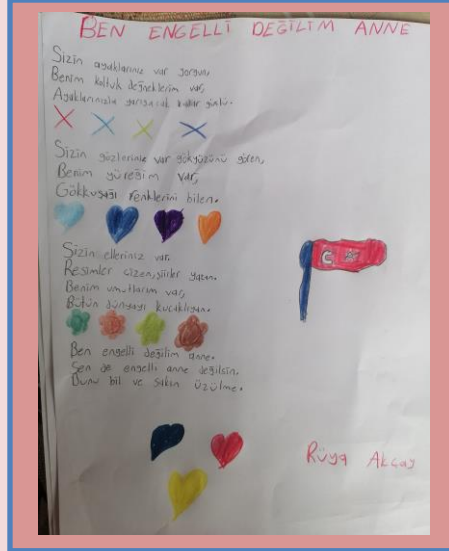 BEN ENGELLİ DEĞİLİM ANNE
Sizin ayaklarınız var yorgun,
Benim koltuk değneklerim var,
Ayaklarınızla yarışacak kadar güçlü.
Sizin gözleriniz var gökyüzünü gören,
Benim yüreğim var,
Gökkuşağı renklerini bilen.
Sizin elleriniz var,
Resimler çizen, şiirler yazan.
Benim umutlarım var,
Bütün dünyayı kucaklayan.
Ben engelli değilim anne.
Sen de engelli anne değilsin,
Bunu bil ve sakın üzülme.
Rüya Akçay